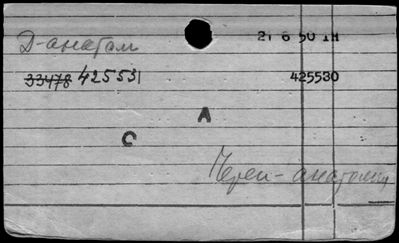 Д-анатом 21 6 50 IH
33478 425531 425530
A
C
Череп-анатомия